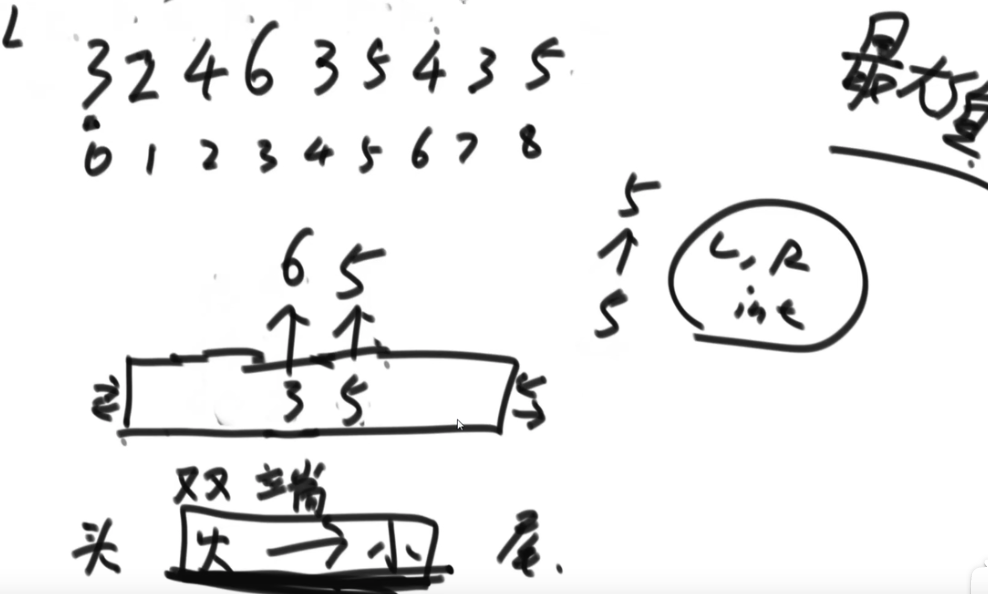 L
3 2 4 6 3 5 4 3 5
最大值
0 1 2 3 4 5 6 7 8
5
↑
5
L, R
int
6 5
↑ ↑
3 5
双端
头 大 → 小 尾